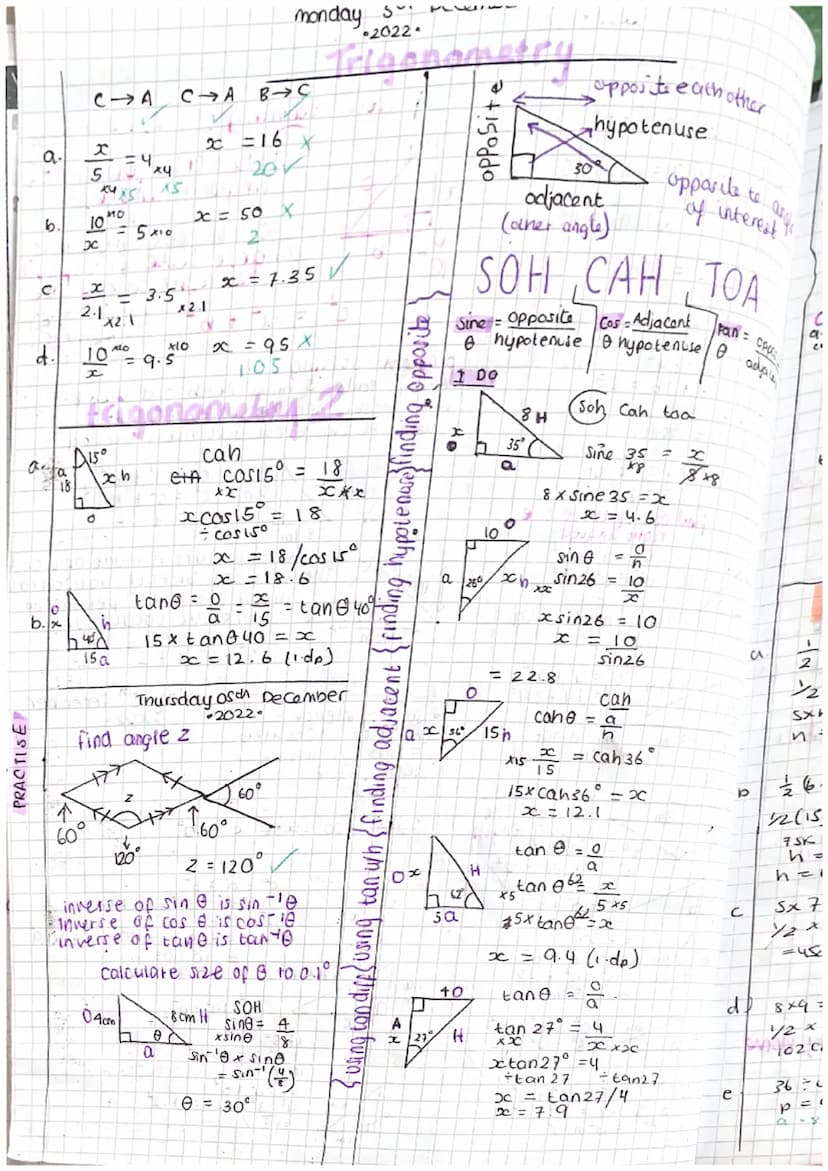 monday
·2022·
Trigonometry
C → A C → A B → C
a. x/5 = 4 x4 x = 16 x
x4 x5 x5 20 ✓
b. 10 x10/x = 5 x10 x = 50 x
2
c. x/2.1 = 3.5 x = 7.35 ✓
x2.1 x2.1
d. 10 x10/x = 9.5 x10 x = 95 x
1.05
trigonometry 2
a. 15° a 18 x h o
cah
cos15° = 18/x
xx xx
xcos15° = 18
÷cos15°
x = 18/cos15°
x = 18.6
b. o x h 40° 15a
tanθ = o/a = x/15 = tanθ40°
15 x tanθ40 = x
x = 12.6 (1.dp)
Thursday 08th December
·2022·
PRACTISE
find angle z
z 60°
60° 60°
120°
z = 120° ✓
inverse of sin θ is sin⁻¹θ
inverse of cos θ is cos⁻¹θ
inverse of tanθ is tan⁻¹θ
calculate size of θ to 0.1°
O4cm 8cm H θ a
SOH
sinθ = 4/8
xsinθ
sin⁻¹θ x sinθ
= sin⁻¹(4/8)
θ = 30°
{using tan diff{using tan w/h {finding adjacent {finding hypotenuse}finding opposite}
opposite each other
opposite
hypotenuse
30°
adjacent
(other angle)
opposite to angle
of interest
SOH CAH TOA
sine θ = opposite/hypotenuse
Cos θ = Adjacent/hypotenuse
tan θ =
I DO
x o 8 H 35° a
Soh Cah toa
sine 35 = x/8
x8 x8
8 x sine35 = x
x = 4.6
10 o a 26° x h
sinθ = o/h
xx sin26 = 10/x
xsin26 = 10
x = 10/sin26
= 22.8
o a x 36° 15h
cah
cahθ = a/h
x15 x/15 = cah36°
15xcah36° = x
x = 12.1
O x H 62° 5a
tan θ = o/a
x5 tan θ62 = x/5 x5
5xtanθ62 = x
x = 9.4 (1.dp)
4O A x 27° H
tanθ = o/a
tan 27° = 4/x
xx xx
xtan27° = 4
÷tan27 ÷tan27
x = tan27/4
x = 7.9
a 1/2
1/2
5x
h =
b 1/2 (6
1/2 (15
75x
h =
h =
c 5x7
1/2 x
=45
d) 8x9 =
1/2 x
102
e 36 ÷
p =